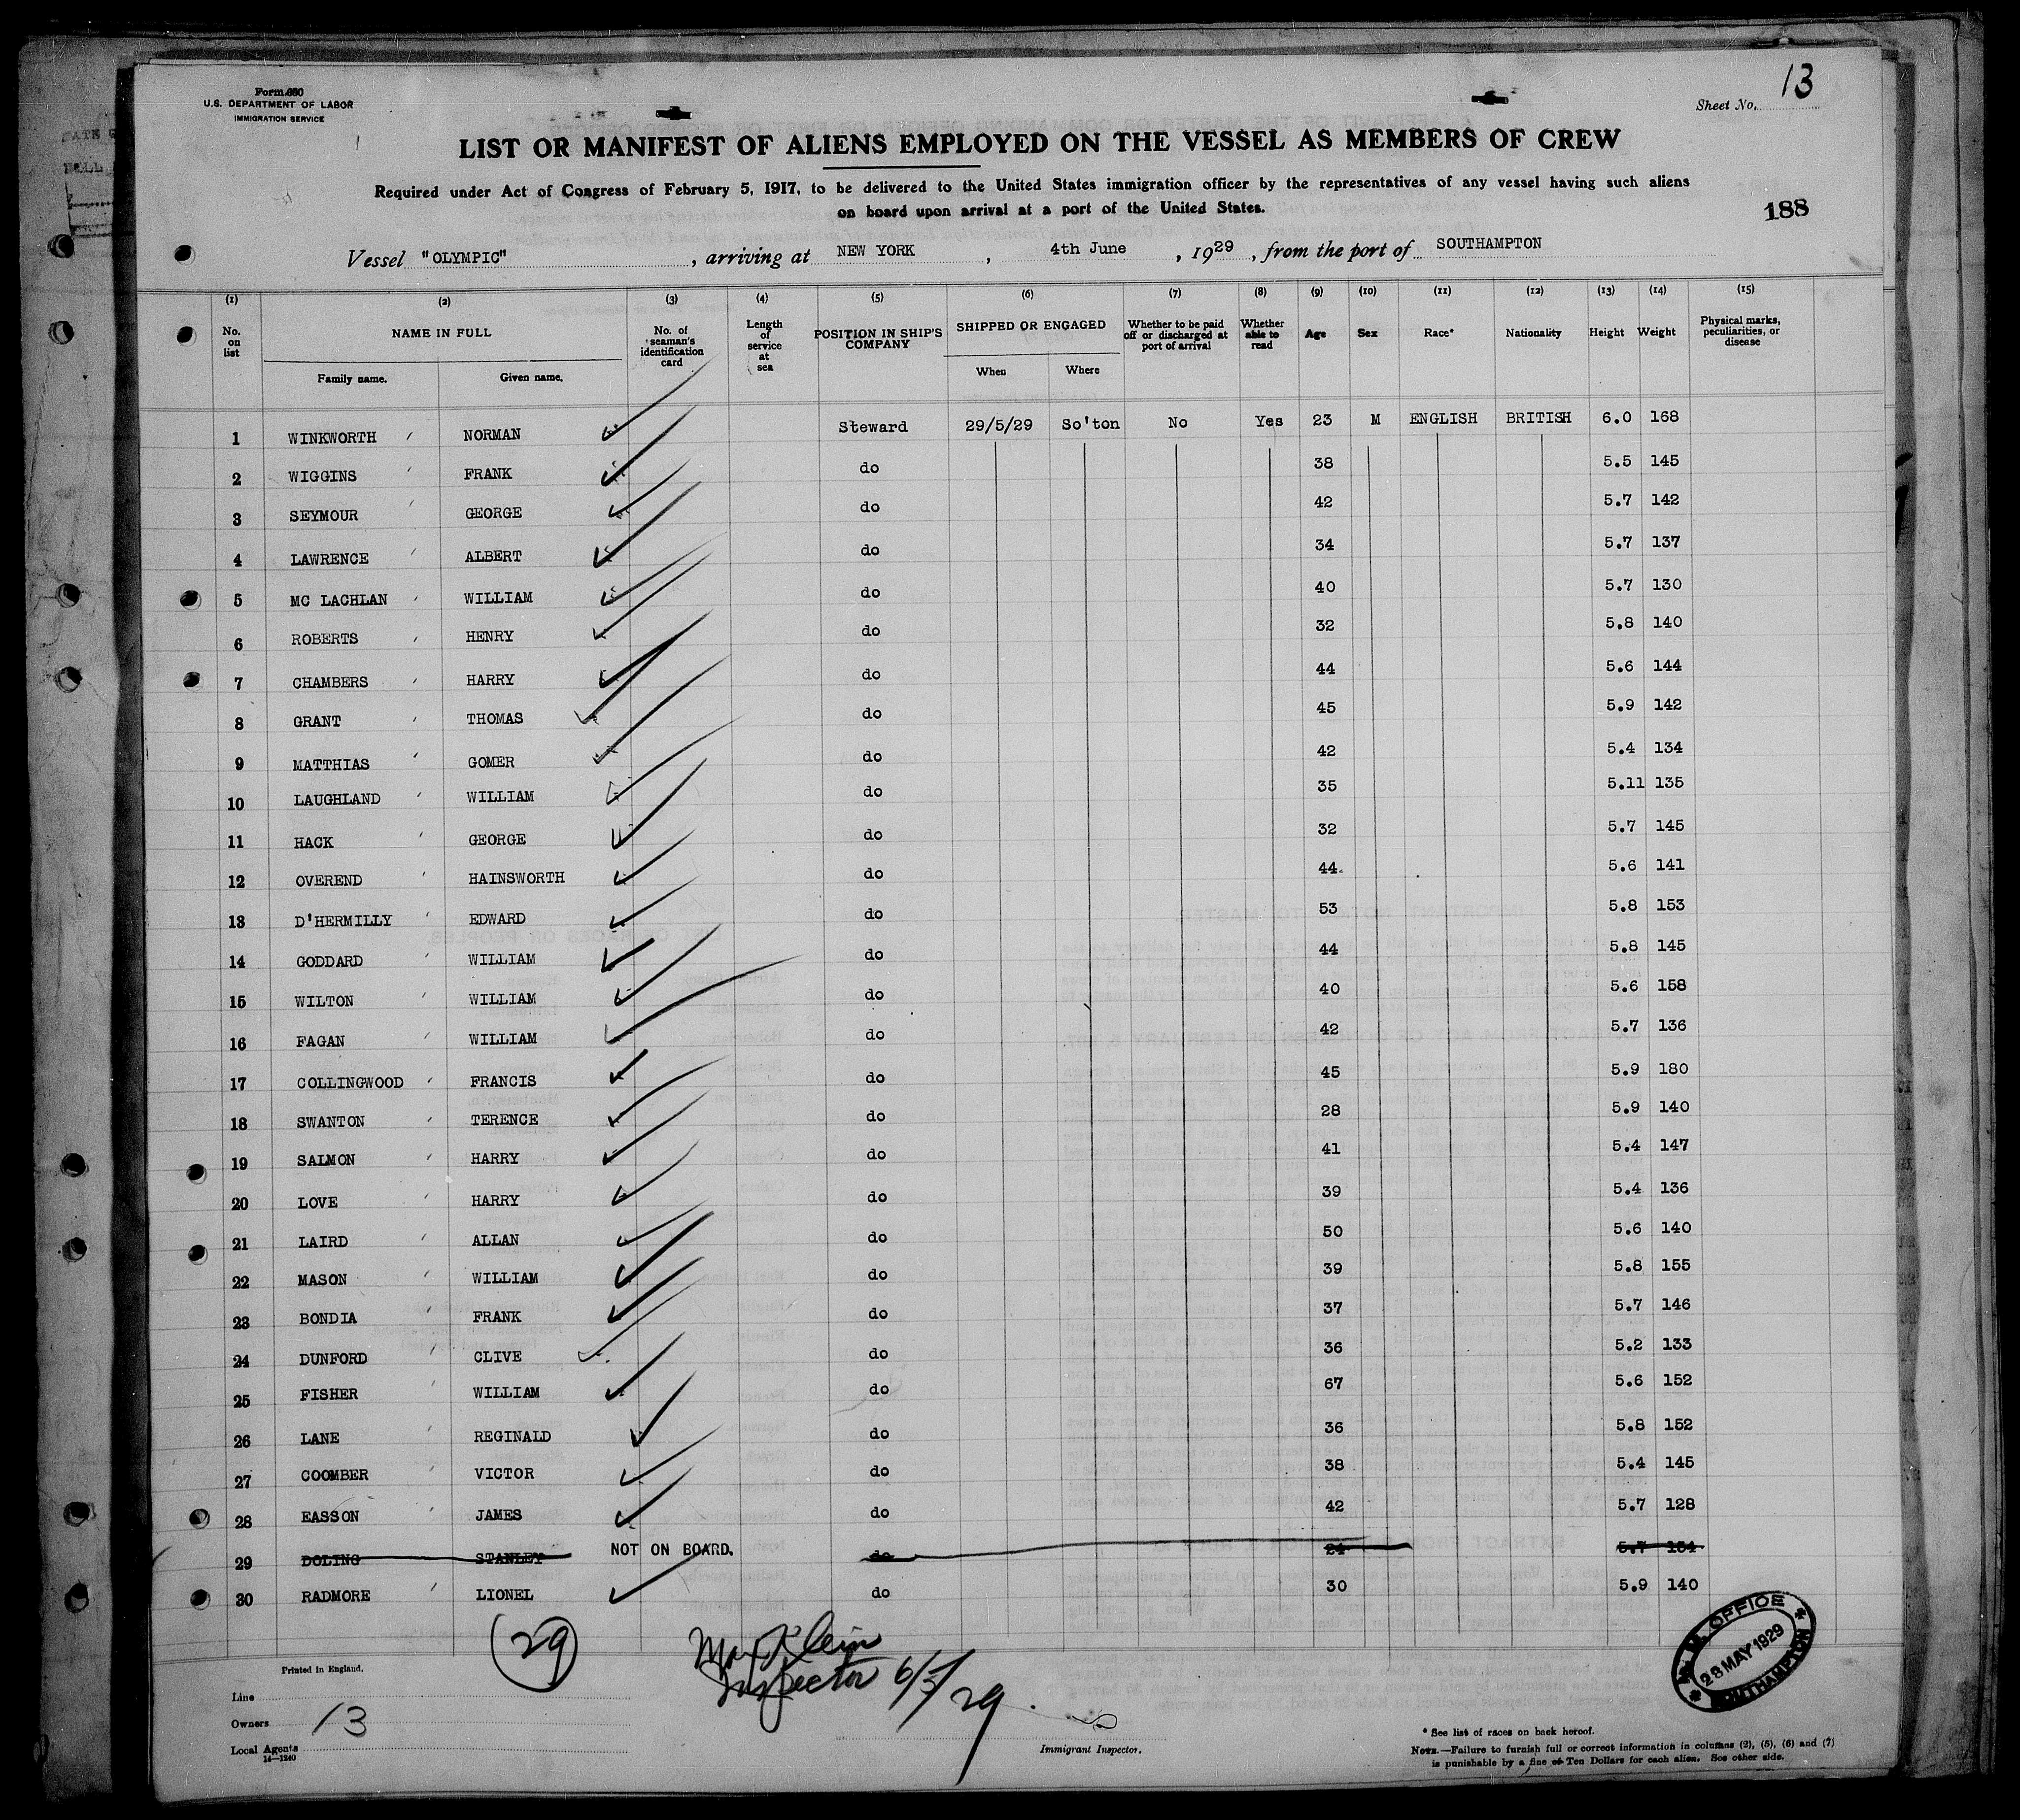 Form 680
U.S. DEPARTMENT OF LABOR
IMMIGRATION SERVICE
Sheet No. 13
LIST OR MANIFEST OF ALIENS EMPLOYED ON THE VESSEL AS MEMBERS OF CREW
Required under Act of Congress of February 5, 1917, to be delivered to the United States immigration officer by the representatives of any vessel having such aliens
on board upon arrival at a port of the United States.
188
Vessel "OLYMPIC", arriving at NEW YORK, 4th June, 1929, from the port of SOUTHAMPTON
(1) (2) (3) (4) (5) (6) (7) (8) (9) (10) (11) (12) (13) (14) (15)
No. on list NAME IN FULL Family name. Given name. No. of seaman's identification card Length of service at sea POSITION IN SHIP'S COMPANY SHIPPED OR ENGAGED When Where Whether to be paid off or discharged at port of arrival Whether able to read Age Sex Race* Nationality Height Weight Physical marks, peculiarities, or disease
1 WINKWORTH NORMAN Steward 29/5/29 So'ton No Yes 23 M ENGLISH BRITISH 6.0 168
2 WIGGINS FRANK do 38 5.5 145
3 SEYMOUR GEORGE do 42 5.7 142
4 LAWRENCE ALBERT do 34 5.7 137
5 MC LACHLAN WILLIAM do 40 5.7 130
6 ROBERTS HENRY do 32 5.8 140
7 CHAMBERS HARRY do 44 5.6 144
8 GRANT THOMAS do 45 5.9 142
9 MATTHIAS GOMER do 42 5.4 134
10 LAUGHLAND WILLIAM do 35 5.11 135
11 HACK GEORGE do 32 5.7 145
12 OVEREND HAINSWORTH do 44 5.6 141
13 D'HERMILLY EDWARD do 53 5.8 153
14 GODDARD WILLIAM do 44 5.8 145
15 WILTON WILLIAM do 40 5.6 158
16 FAGAN WILLIAM do 42 5.7 136
17 COLLINGWOOD FRANCIS do 45 5.9 180
18 SWANTON TERENCE do 28 5.9 140
19 SALMON HARRY do 41 5.4 147
20 LOVE HARRY do 39 5.4 136
21 LAIRD ALLAN do 50 5.6 140
22 MASON WILLIAM do 39 5.8 155
23 BONDIA FRANK do 37 5.7 146
24 DUNFORD CLIVE do 36 5.2 133
25 FISHER WILLIAM do 67 5.6 152
26 LANE REGINALD do 36 5.8 152
27 COOMBER VICTOR do 38 5.4 145
28 EASSON JAMES do 42 5.7 128
29 DOLING STANLEY NOT ON BOARD. do 24 5.7 154
30 RADMORE LIONEL do 30 5.9 140
29
Max Klein
Inspector 6/5/29.
M. M. OFFICE
28 MAY 1929
SOUTHAMPTON
Printed in England.
Line
Owners 13
Local Agents
14—1240
Immigrant Inspector.
* See list of races on back hereof.
NOTE.—Failure to furnish full or correct information in columns (2), (5), (6) and (7)
is punishable by a fine of Ten Dollars for each alien. See other side.